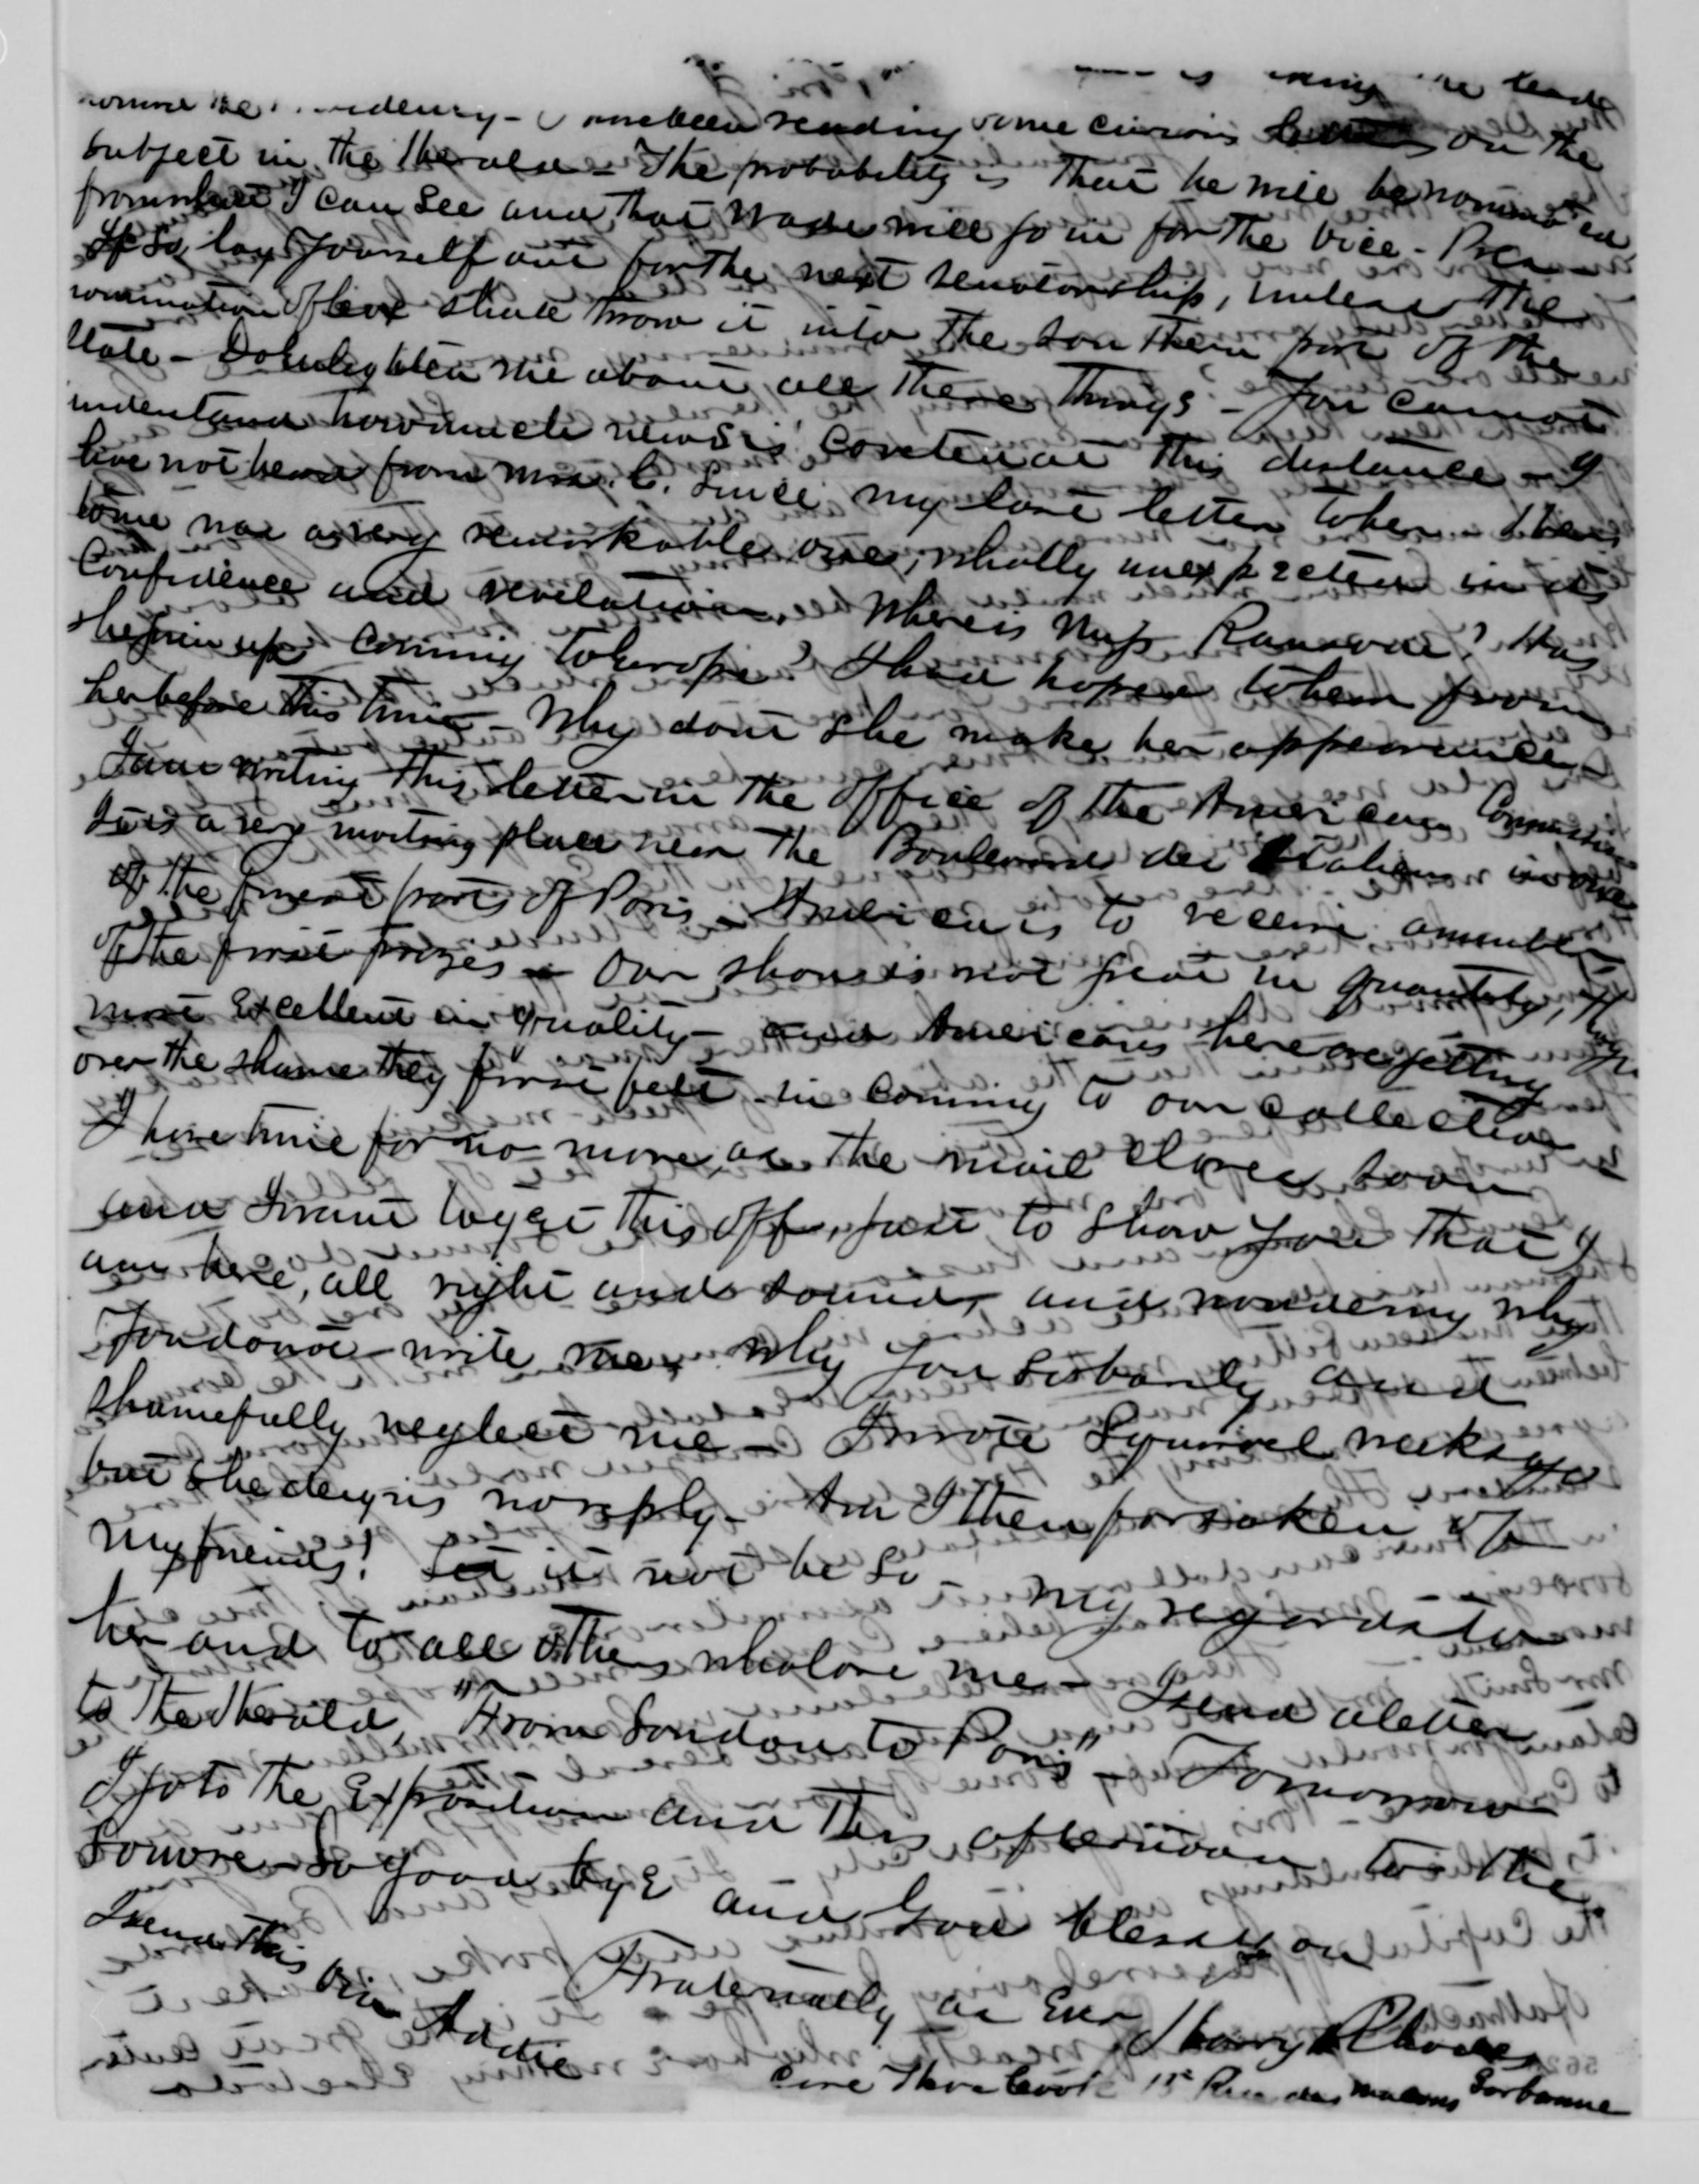 is the lead
been reading some curious letters on the
subject in the Herald - The probability is that he will be nominated
from what I can see and that Wade will go in for the Vice-Pres
If so, lay yourself out for the next senatorship, unless the
nomination of shall throw it into the Southern part of the
State - Do enlighten me about all these things - You cannot
understand how much news is coveted at this distance - I
have not heard from Mrs. C. since my last letter to her - 
some was a very remarkable one, wholly unexpected in its
Confidence and revelations. Where is Miss Ransom? Has
she given up coming to Europe? I had hoped to hear from
her before this time - Why dont she make her appearance -
I am writing this letter in the office of the American Commission
It is a very inviting place near the Boulevard des Italiens in one
of the finest parts of Paris - America is to receive a number
of the first prizes - Our show is not great in quantity, tho
most Excellent in quality - and Americans here are getting
over the shame they first felt in coming to our collection
I have time for no more as the mail closes soon
and I want to get this off, just to show you that I
am here, all right and sound, and wondering why
You do not write me, why you so basely and
shamefully neglect me - I wrote Squirrel weeks ago
but she deigns no reply - Am I then forsaken of
My friends! Let it not be so - My regards to
her and to all others who love me - I send a letter
to the Herald, "From London to Paris" - Tomorrow
I go to the Exposition and this afternoon to the
Louvre - So good bye and God bless you
Fraternally as Ever
I send this via Addie
Harry Rhodes
Care Theo Cook 15 Rue des Macons Sorbonne